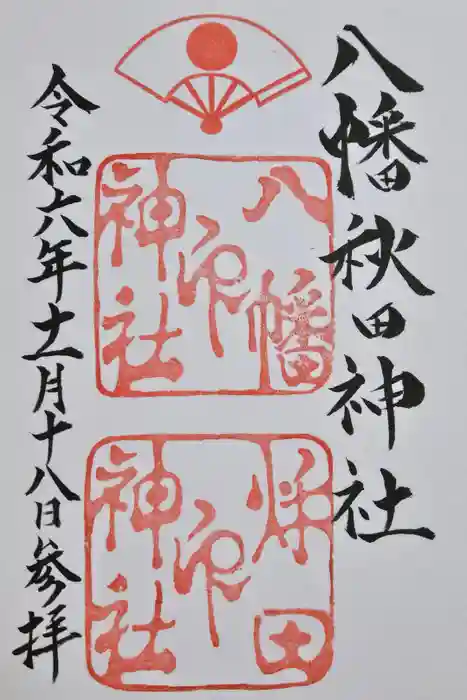 八幡秋田神社
八幡神社印
秌田神社印
令和六年十一月十八日参拝